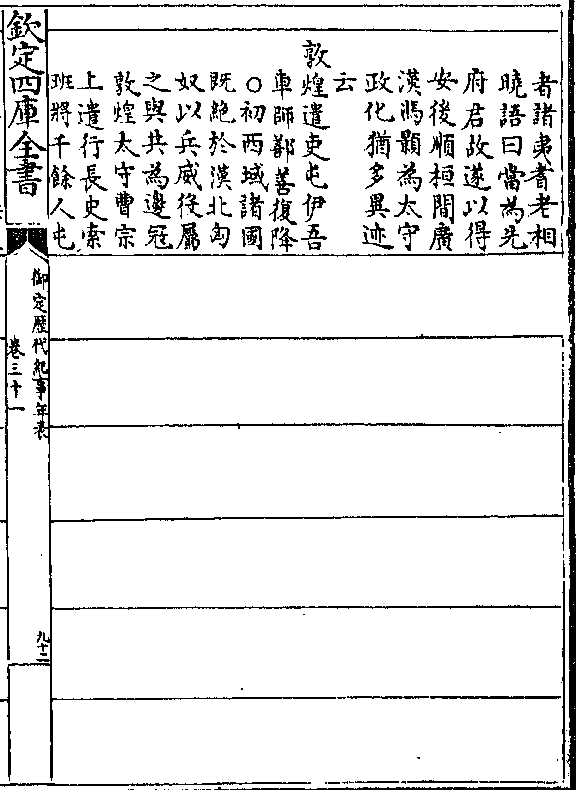 者諸夷耆老相
曉語曰當為先
府君故遂以得
安後順桓間廣
漢馮顥為太守
政化猶多異迹
云
敦煌遣吏屯伊吾
車師鄯善復降
○初西域諸國
既絶於漢北匈
奴以兵威役屬
之與共為邊冦
敦煌太守曹宗
上遣行長史索
班將千餘人屯
欽定四庫全書
御定歴代紀事年表
卷三十一
九十二